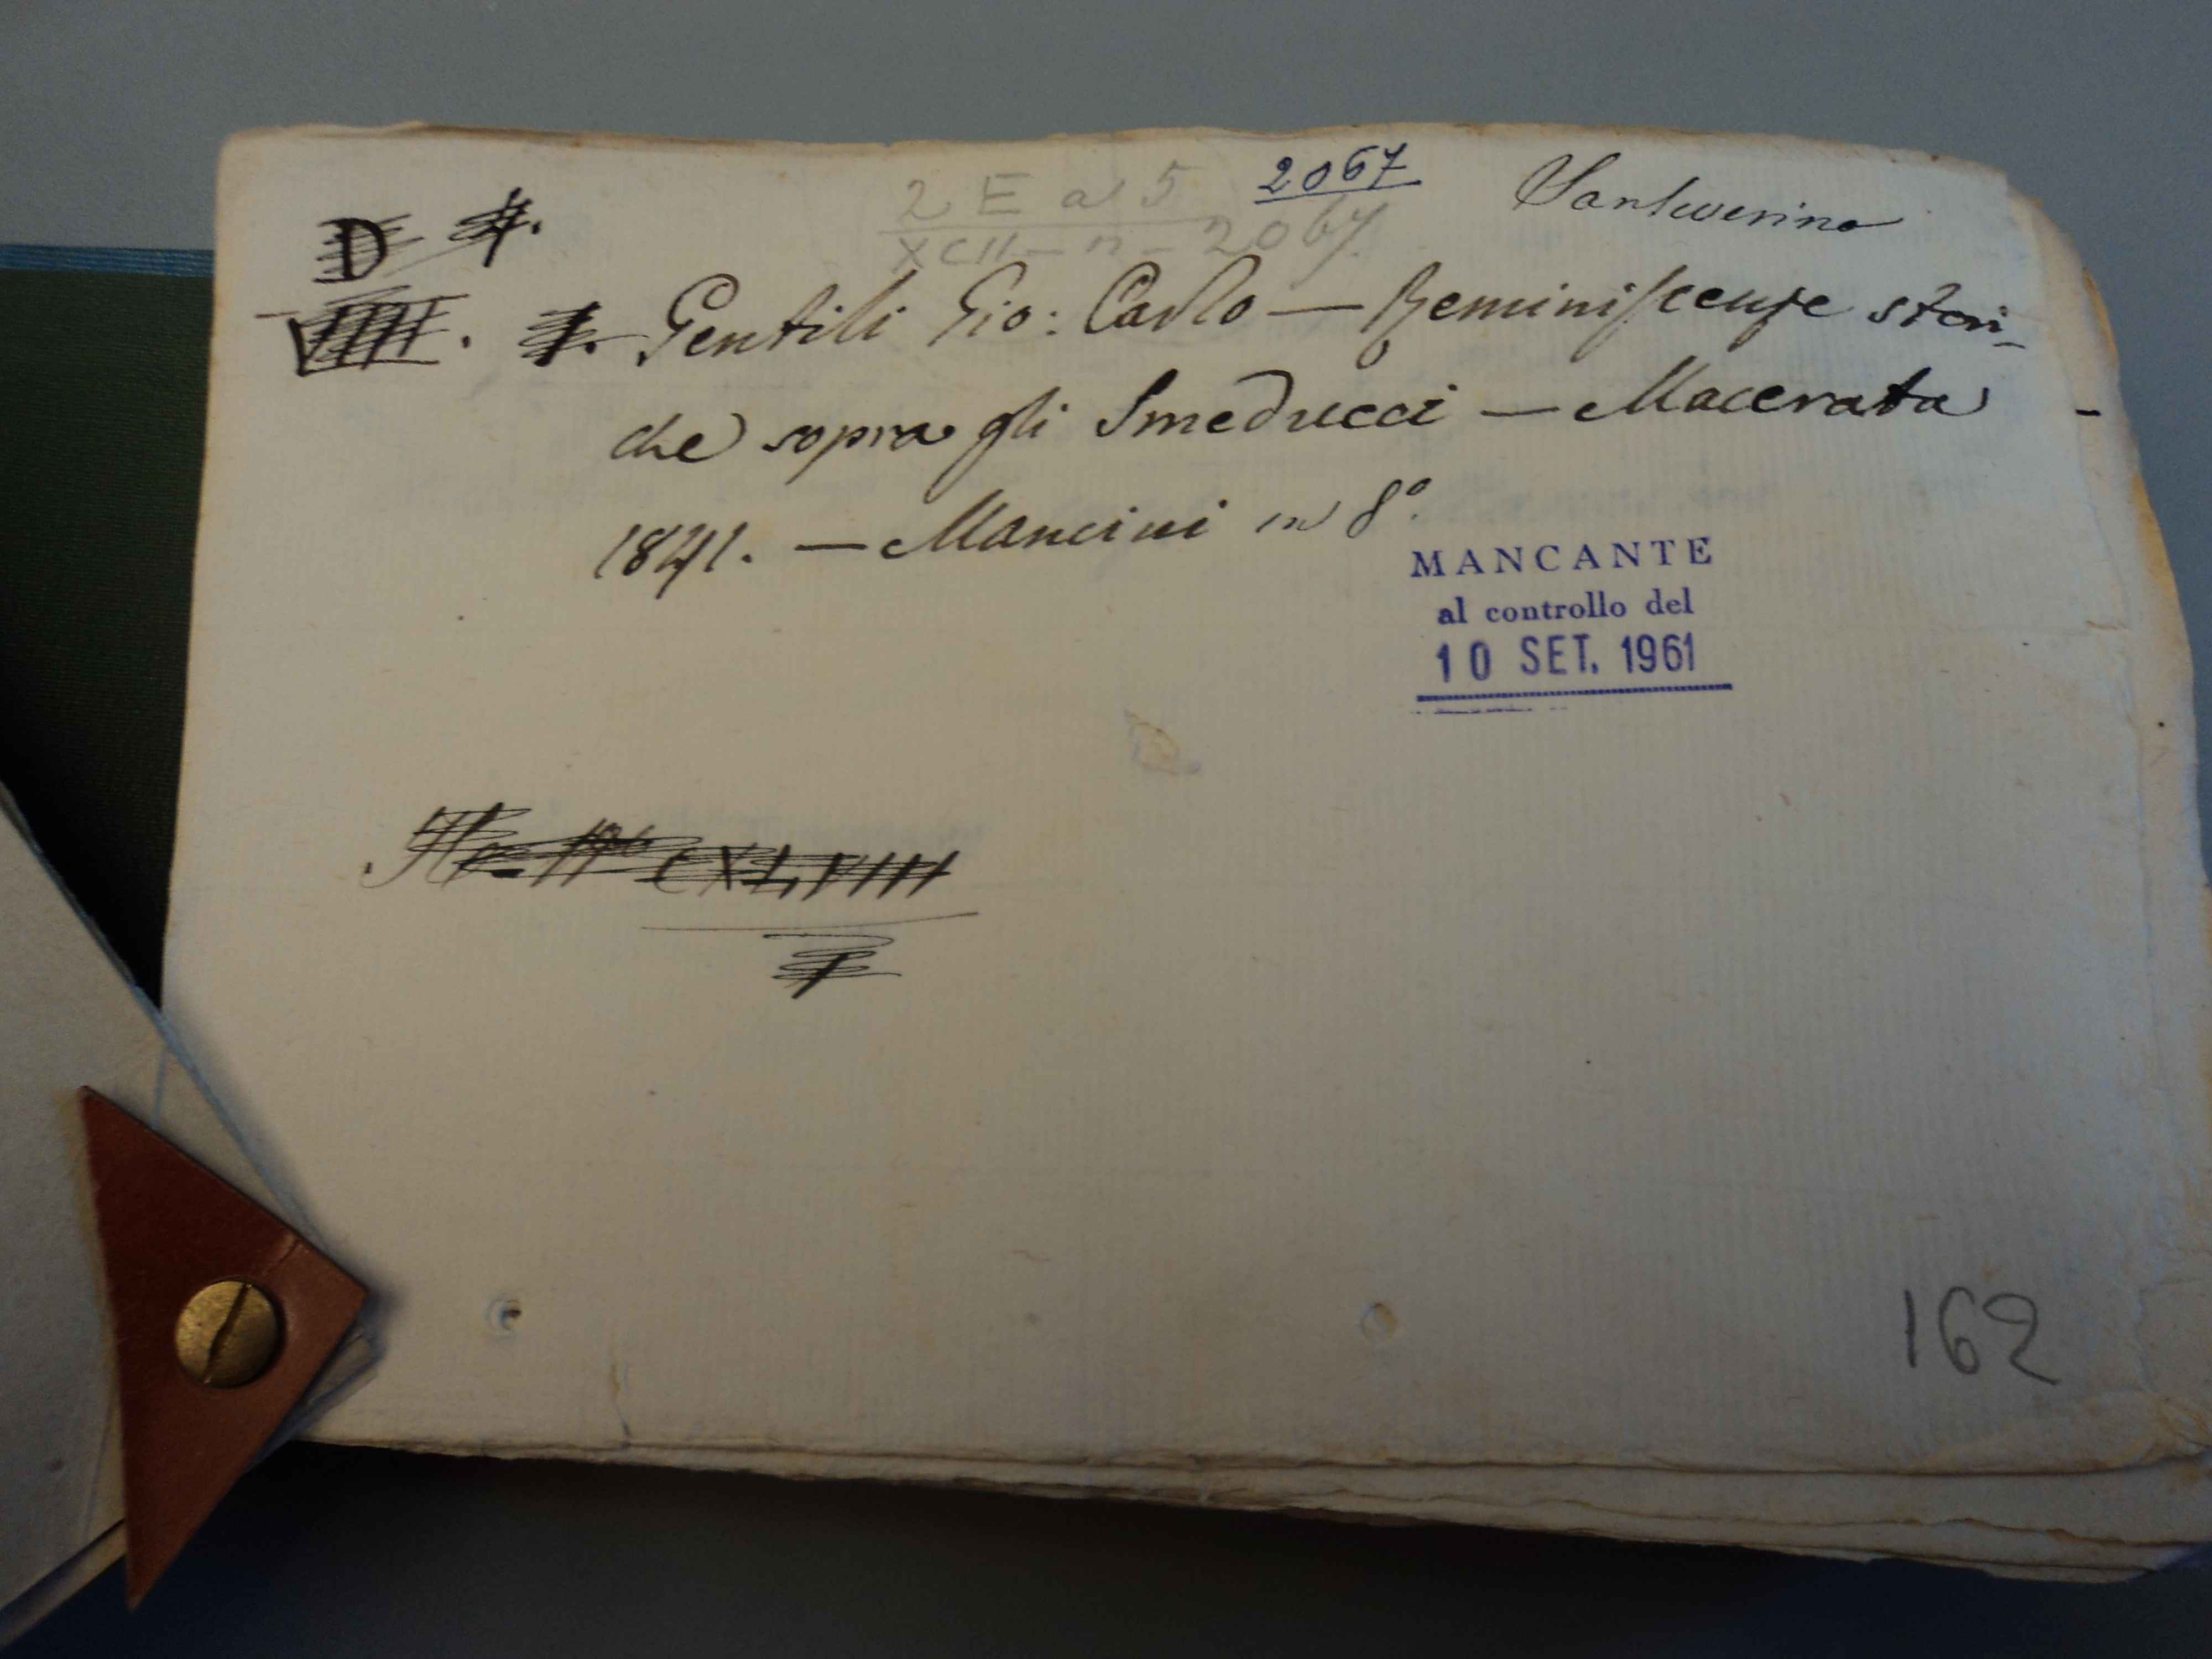 2067
Sanseverino
2 E a 5
XCII - n - 2067.
D 4.
Gentili Gio: Carlo — Reminiscenze stori-
che sopra gli Smeducci — Macerata -
1841. — Mancini in 8º.
MANCANTE
al controllo del
10 SET. 1961
CXLVIII
162